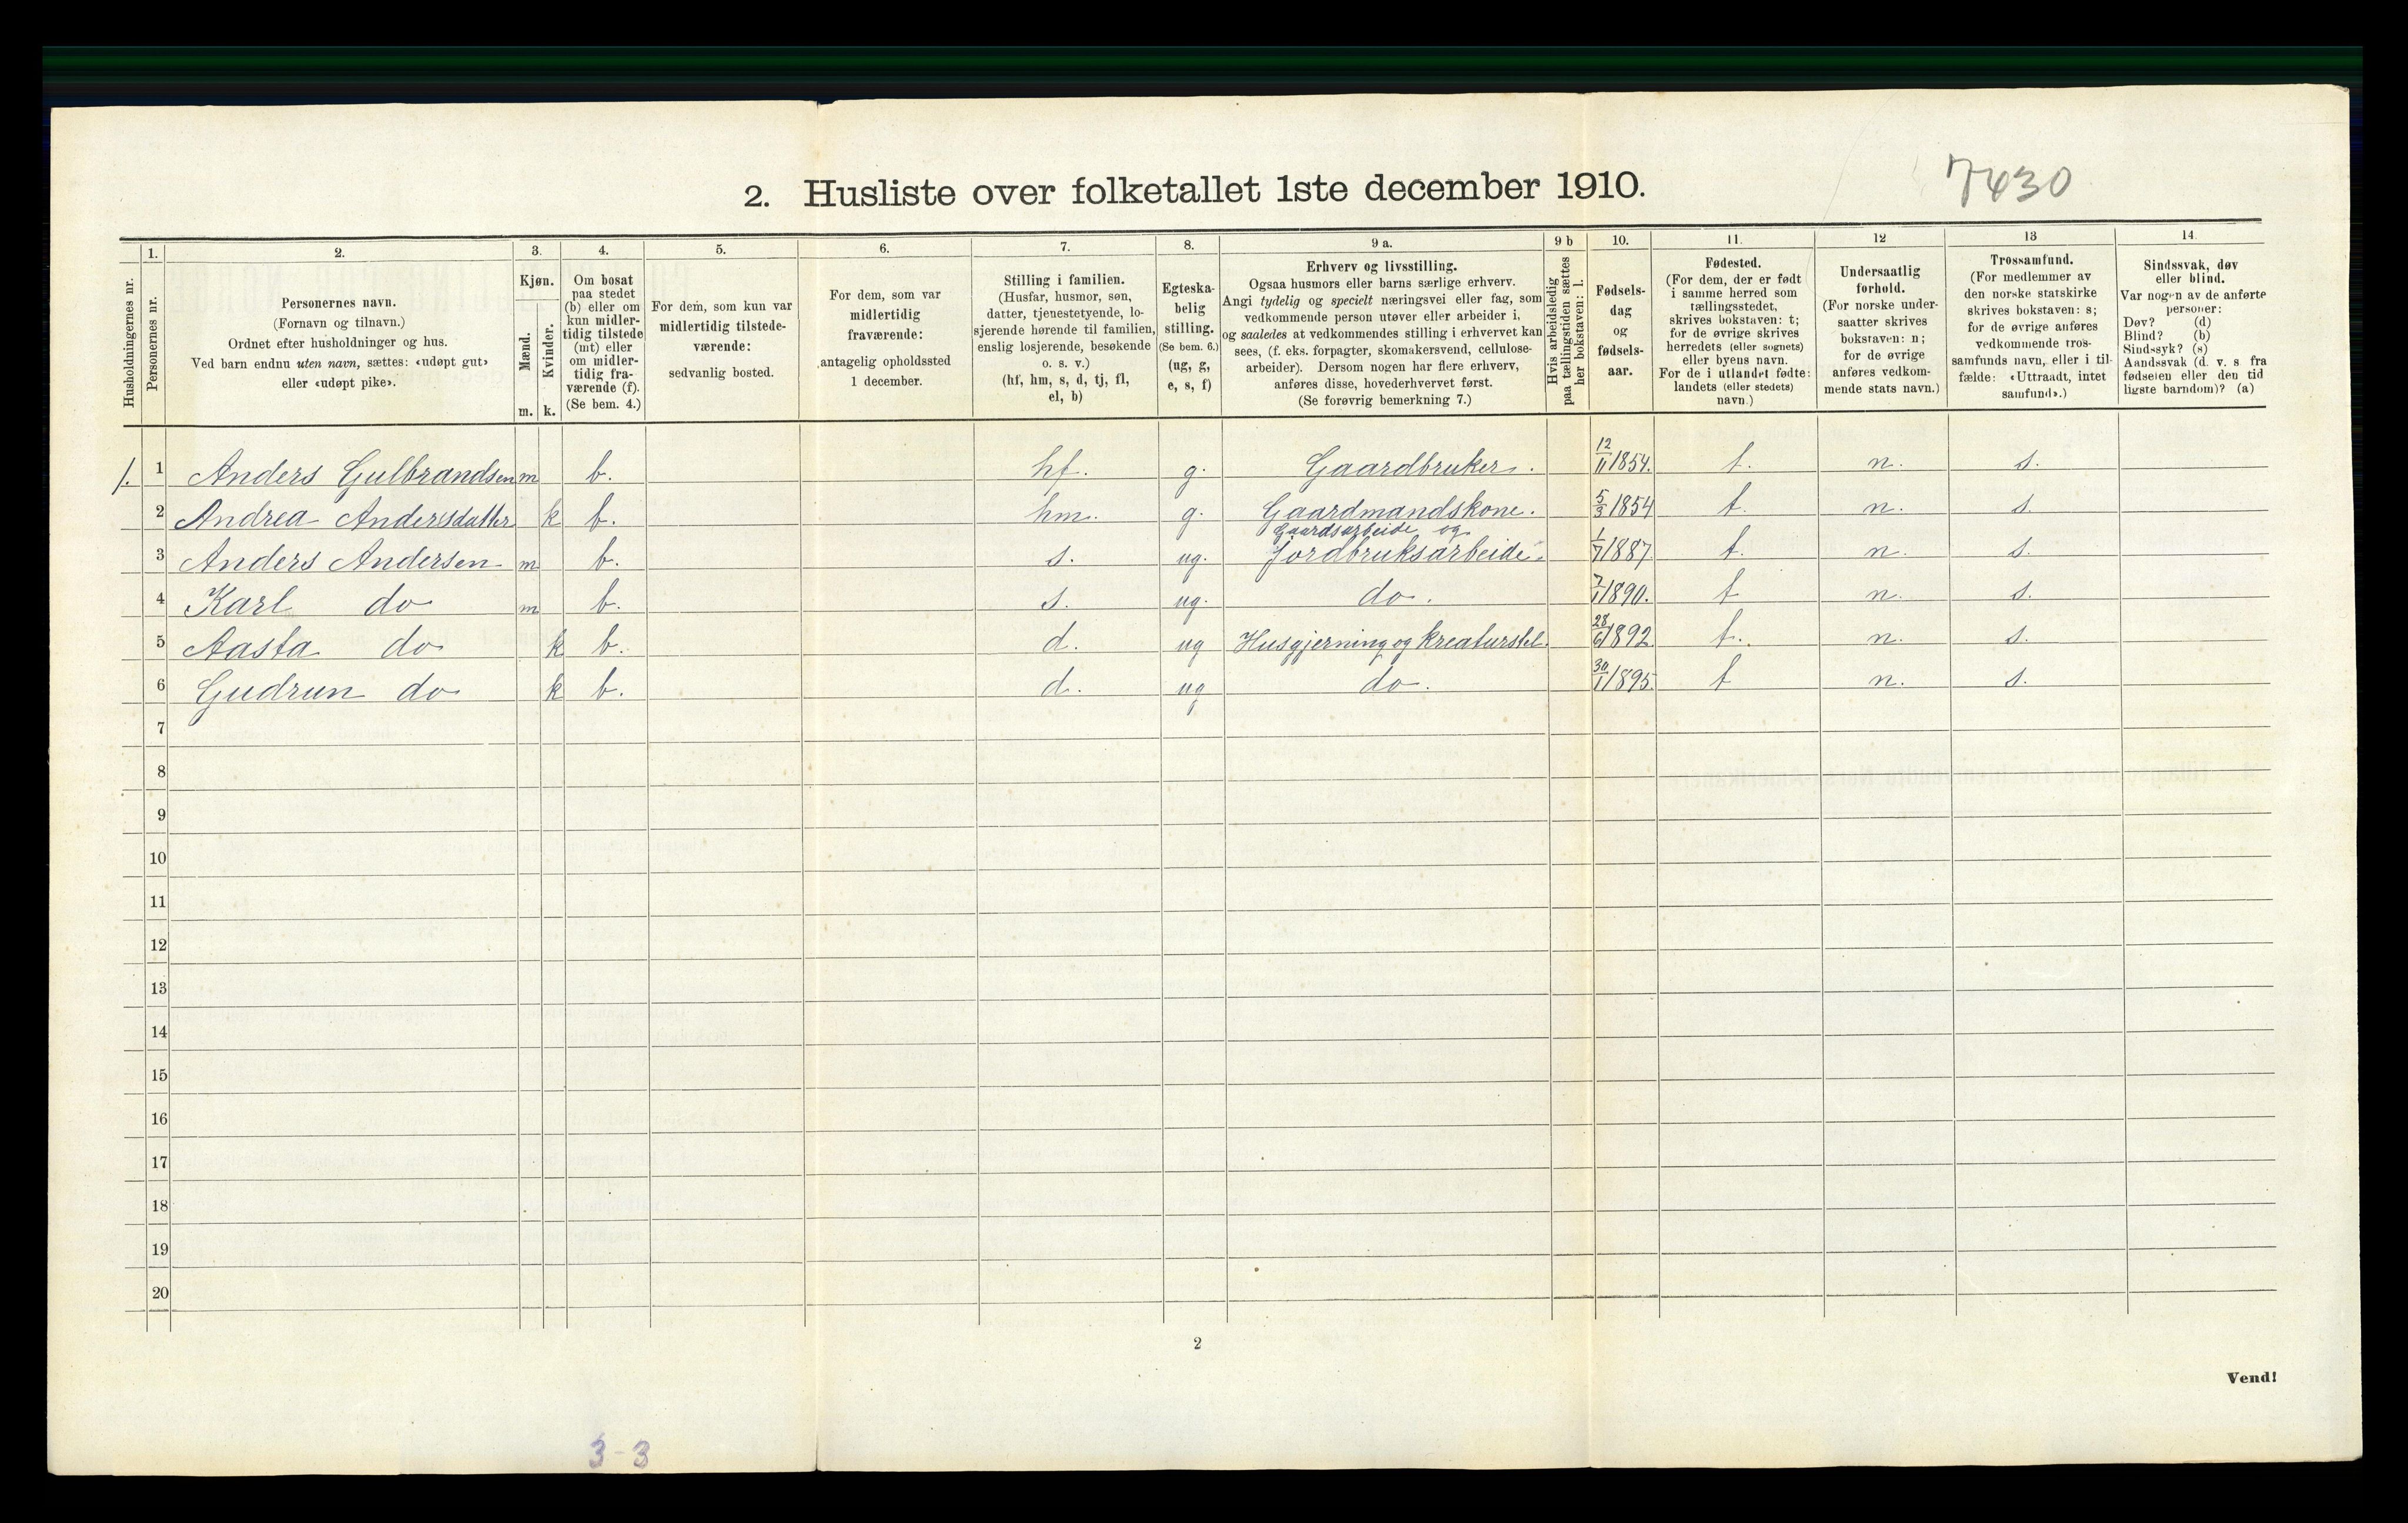 7430
2. Husliste over folketallet 1ste december 1910.
1. 2. 3. 4. 5. 6. 7. 8. 9 a. 9 b 10. 11. 12 13 14.
Husholdningernes nr.
Personernes nr.
Personernes navn.
(Fornavn og tilnavn.)
Ordnet efter husholdninger og hus.
Ved barn endnu uten navn, sættes: «udøpt gut»
eller «udøpt pike».
Kjøn.
Mænd.
Kvinder.
m. k.
Om bosat
paa stedet
(b) eller om
kun midler-
tidig tilstede
(mt) eller
om midler-
tidig fra-
værende (f).
(Se bem. 4.)
For dem, som kun var
midlertidig tilstede-
værende:
sedvanlig bosted.
For dem, som var
midlertidig
fraværende:
antagelig opholdssted
1 december.
Stilling i familien.
(Husfar, husmor, søn,
datter, tjenestetyende, lo-
sjerende hørende til familien,
enslig losjerende, besøkende
o. s. v.)
(hf, hm, s, d, tj, fl,
el, b)
Egteska-
belig
stilling.
(Se bem. 6.)
(ug, g,
e, s, f)
Erhverv og livsstilling.
Ogsaa husmors eller barns særlige erhverv.
Angi tydelig og specielt næringsvei eller fag, som
vedkommende person utøver eller arbeider i,
og saaledes at vedkommendes stilling i erhvervet kan
sees, (f. eks. forpagter, skomakersvend, cellulose-
arbeider). Dersom nogen har flere erhverv,
anføres disse, hovederhvervet først.
(Se forøvrig bemerkning 7.)
Hvis arbeidsledig
paa tællingstiden sættes
her bokstaven: l.
Fødsels-
dag
og
fødsels-
aar.
Fødested.
(For dem, der er født
i samme herred som
tællingsstedet,
skrives bokstaven: t;
for de øvrige skrives
herredets (eller sognets)
eller byens navn.
For de i utlandet fødte:
landets (eller stedets)
navn.)
Undersaatlig
forhold.
(For norske under-
saatter skrives
bokstaven: n;
for de øvrige
anføres vedkom-
mende stats navn.)
Trossamfund.
(For medlemmer av
den norske statskirke
skrives bokstaven: s;
for de øvrige anføres
vedkommende tros-
samfunds navn, eller i til-
fælde: «Uttraadt, intet
samfund».)
Sindssvak, døv
eller blind.
Var nogen av de anførte
personer:
Døv? (d)
Blind? (b)
Sindssyk? (s)
Aandssvak (d. v. s. fra
fødselen eller den tid
ligste barndom)? (a)
1. 1 Anders Gulbrandsen m b. hf. g. Gaardbruker. 12/11 1854. t. n. s.
2 Andrea Andersdatter k b. hm. g. Gaardmandskone. 5/3 1854 t. n. s.
Gaardsarbeide og
3 Anders Andersen m b. s. ug. Jordbruksarbeide. 1/7 1887 t. n. s.
4 Karl do m b. s. ug. do. 7/1 1890. t n. s.
5 Aasta do k b. d. ug Husgjerning og kreaturstel. 28/6 1892. t. n. s.
6 Gudrun do k b. d. ug do. 30/1 1895. t n. s.
7
8
9
10
11
12
13
14
15
16
17
18
19
20
2
Vend!
3-3